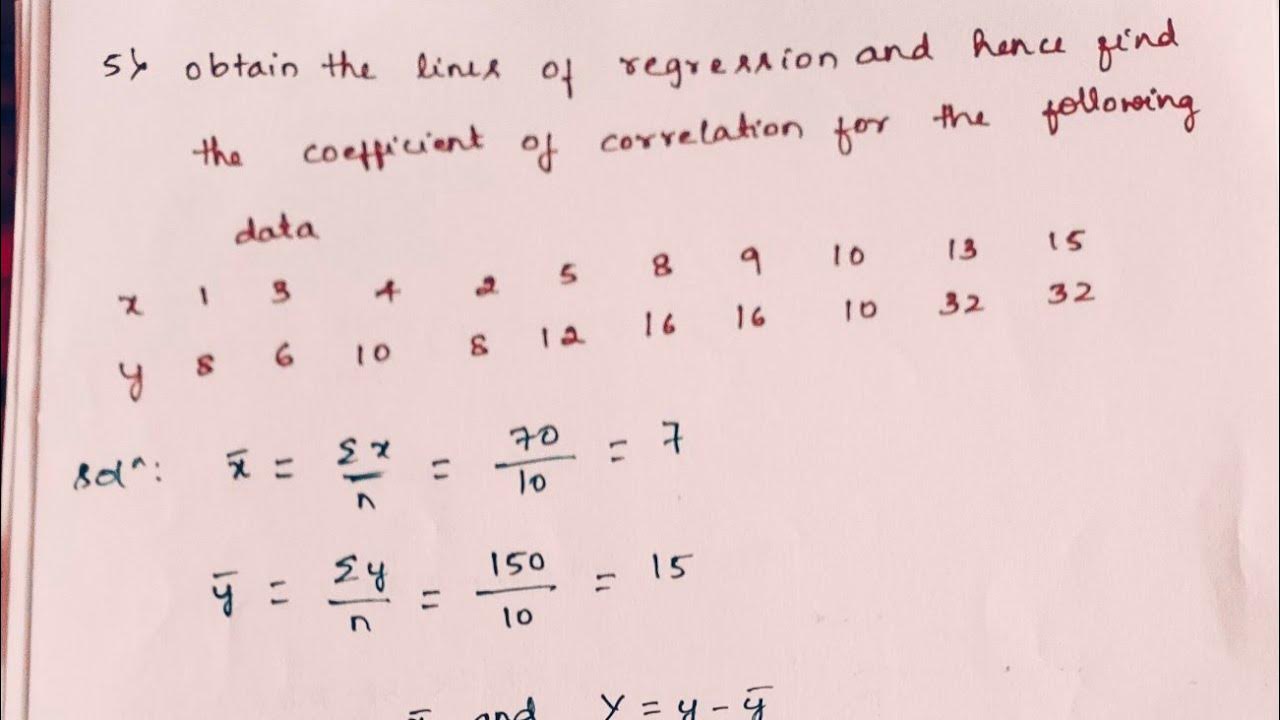 5) obtain the lines of regression and hence find
the coefficient of correlation for the following
data
x 1 3 4 2 5 8 9 10 13 15
y 8 6 10 8 12 16 16 10 32 32
Sol^n: x̄ = Σx/n = 70/10 = 7
ȳ = Σy/n = 150/10 = 15
and Y = y - ȳ